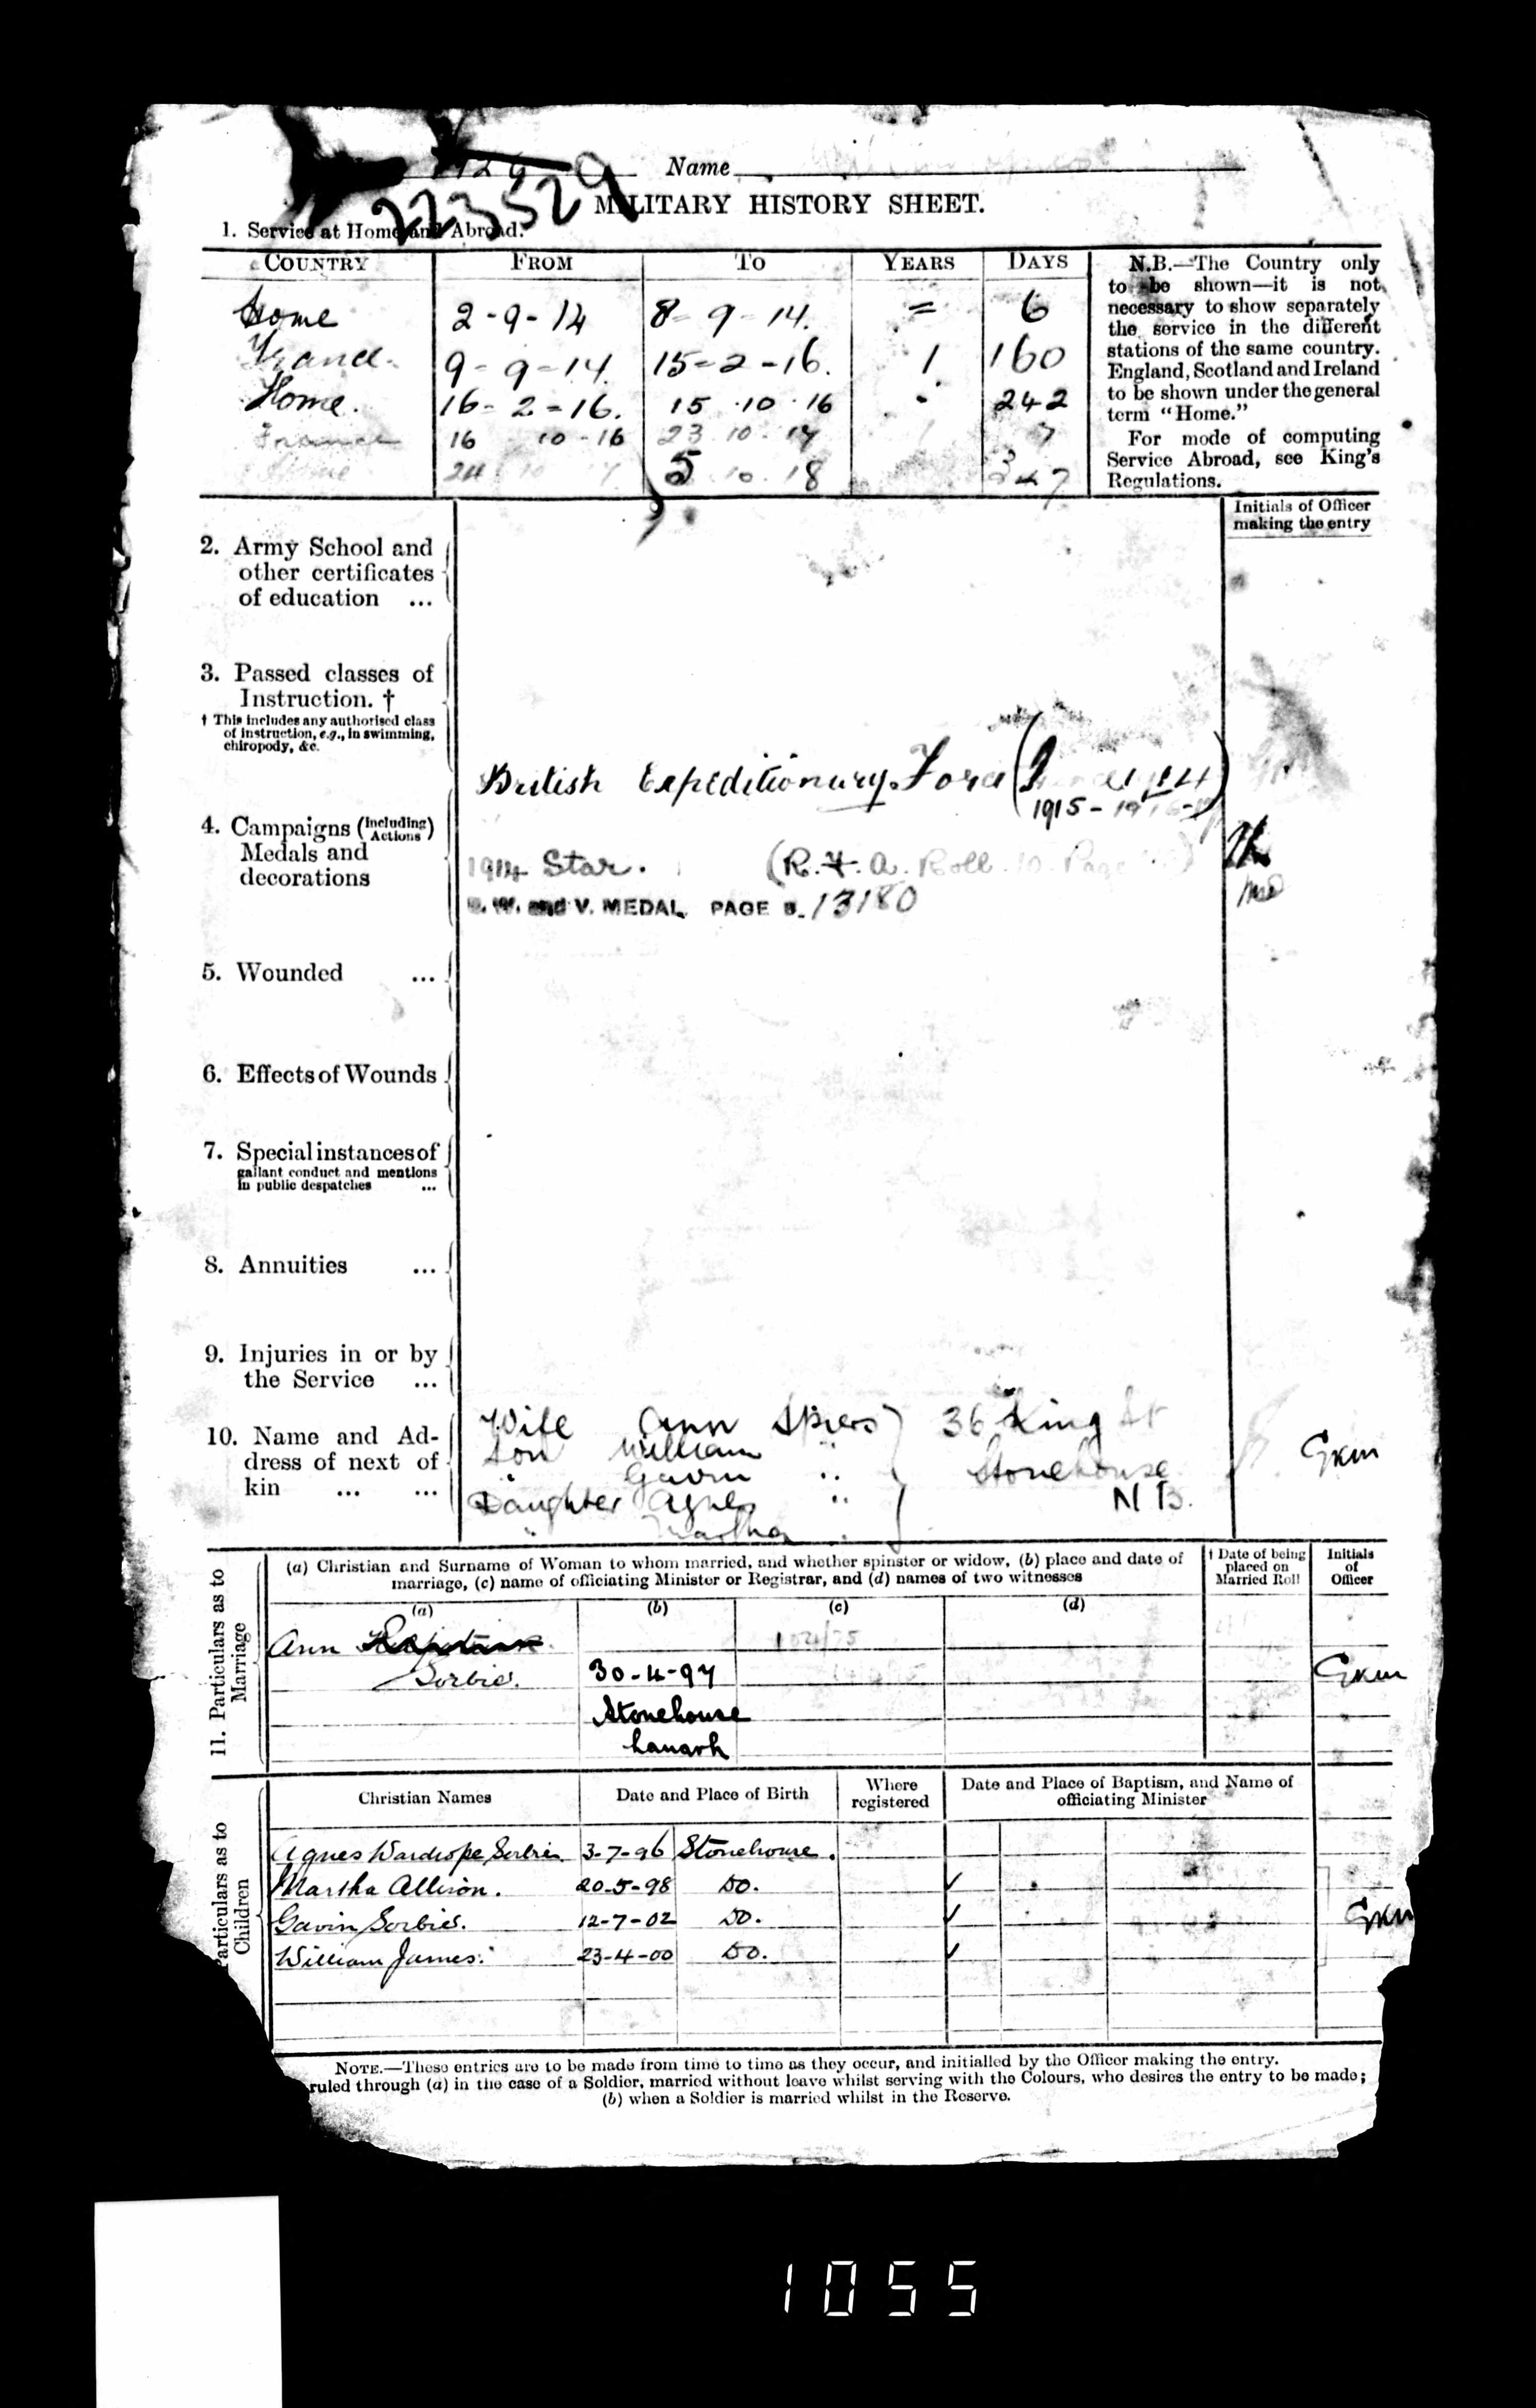 Name
223529
MILITARY HISTORY SHEET.
1. Service at Home and Abroad.
COUNTRY FROM TO YEARS DAYS
Home 2-9-14 8-9-14. = 6
France 9-9-14. 15-2-16. 1 160
Home. 16-2-16. 15.10.16 242
France 16 10-16 23.10.17 1 7
Home 24 10 17 5.10.18 347
N.B.—The Country only
to be shown—it is not
necessary to show separately
the service in the different
stations of the same country.
England, Scotland and Ireland
to be shown under the general
term "Home."
For mode of computing
Service Abroad, see King's
Regulations.
Initials of Officer
making the entry
2. Army School and
other certificates
of education ...
3. Passed classes of
Instruction. †
† This includes any authorised class
of instruction, e.g., in swimming,
chiropody, &c.
British Expeditionary Force (France 1914)
1915-1916-17
4. Campaigns (including Actions)
Medals and
decorations
1914 Star. (R.F.A. Roll 10 Page )
B. W. and V. MEDAL PAGE B. 13180
5. Wounded ...
6. Effects of Wounds
7. Special instances of
gallant conduct and mentions
in public despatches ...
8. Annuities ...
9. Injuries in or by
the Service ...
10. Name and Ad-
dress of next of
kin ... ...
Wife Ann Spiers 36 King St
Son William "
" Gavin " Stonehouse
Daughter Agnes " N B.
" Martha "
Gkm
11. Particulars as to Marriage
(a) Christian and Surname of Woman to whom married, and whether spinster or widow, (b) place and date of
marriage, (c) name of officiating Minister or Registrar, and (d) names of two witnesses
† Date of being
placed on
Married Roll
Initials
of
Officer
(a) (b) (c) (d)
Ann
Sorbie. 30-4-97 Gkm
Stonehouse
Lanark
Particulars as to Children
Christian Names Date and Place of Birth Where registered Date and Place of Baptism, and Name of officiating Minister
Agnes Wardrope Sorbie 3-7-96 Stonehouse.
Martha Allison. 20-5-98 Do. ✓
Gavin Sorbie. 12-7-02 Do. ✓ Gkm
William James. 23-4-00 Do. ✓
NOTE.—These entries are to be made from time to time as they occur, and initialled by the Officer making the entry.
ruled through (a) in the case of a Soldier, married without leave whilst serving with the Colours, who desires the entry to be made;
(b) when a Soldier is married whilst in the Reserve.
1055